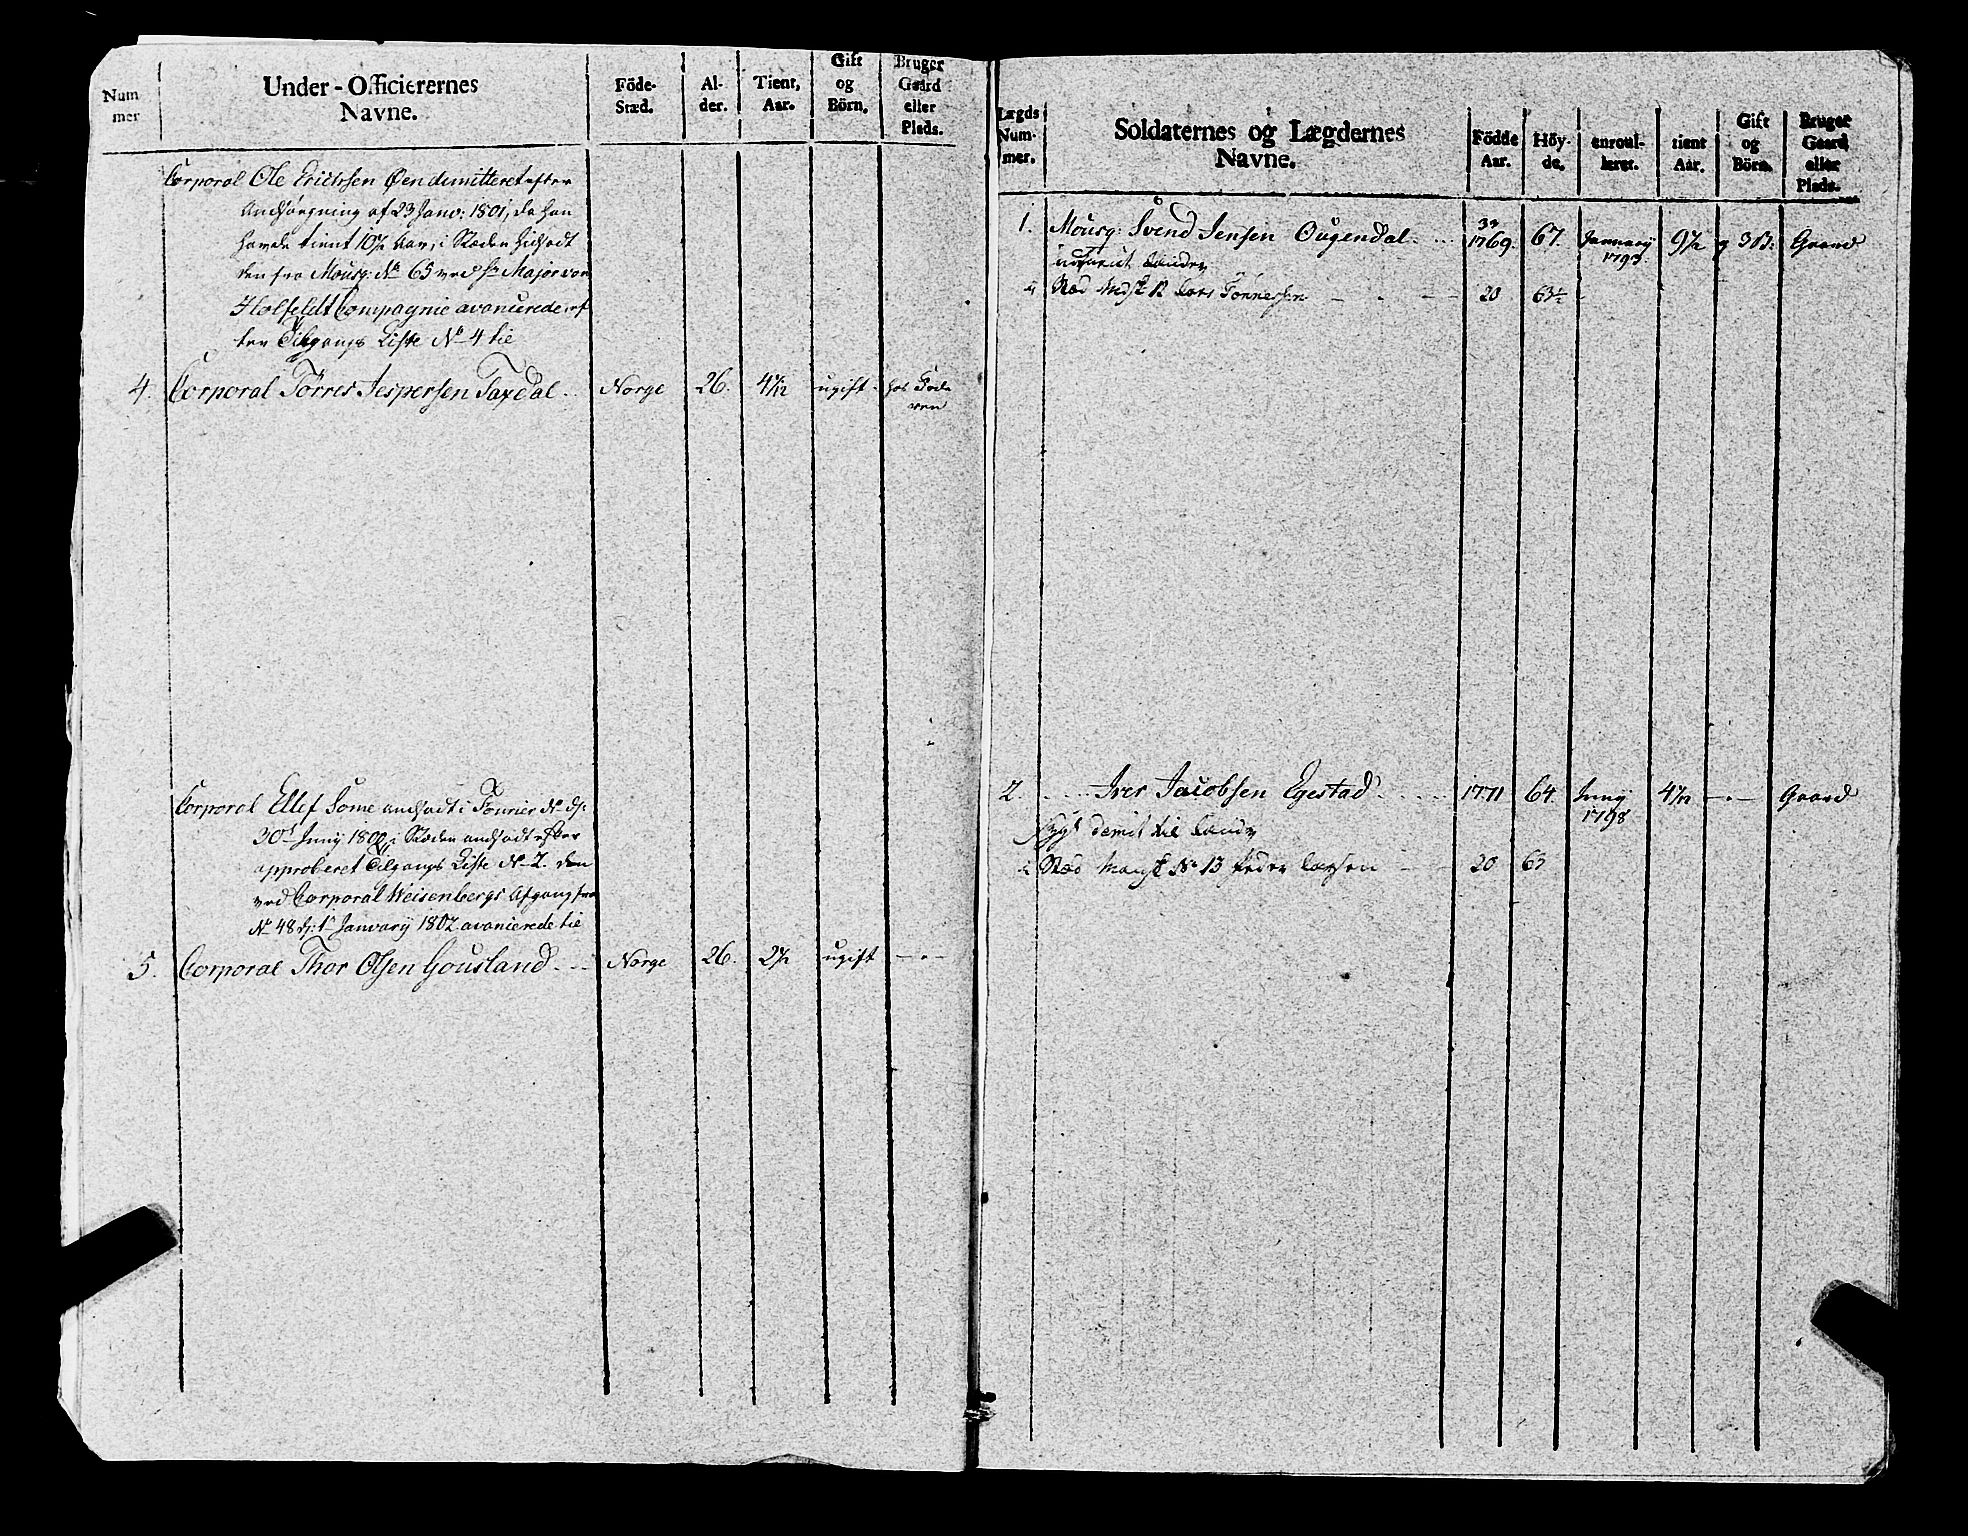 Num
mer
Under-Officierernes
Navne.
Föde-
Stæd.
Al-
der.
Tient,
Aar.
Gift
og
Börn.
Bruger
Gaard
eller
Plads.
Corporal Ole Erichsen Øen demitteret efter
Ansøgning af 23 Janv: 1801, da han
havde tient 10½ Aar, i Stæden
den fra Mousq: No 65 ved Hr Major von
Holfeldt Compagnie avancerede, ef
ter Tilgangs Liste No 4 til
4. Corporal Tørres Jespersen Taxdal .. Norge 26. 4 7/12 ugift. hos Fade
ren
Corporal Ellef Some ansadt i Fourier No
30t Juny 1800, i Stæden ansadt efter
approberet Tilgangs Liste No 2. den
ved Corporal Weisenbergs Afgang fra
No 48 d: 1t January 1802 avancerede til
5. Corporal Thor Olsen Gousland .. Norge 26. 2½ ugift — " —
Lægds
Num-
mer.
Soldaternes og Lægdernes
Navne.
Födde
Aar.
Höy-
de.
enroul-
leret.
tient
Aar.
Gift
og
Börn.
Bruger
Gaard
eller
Plads.
33
1. Mousq: Svend Jensen Ougendal . . . 1769. 67. January 9½ g 3B: Gaard
1793.
Lars Tønnesen — — 20 63½
2. . . . Iver Jacobsen Egestad . . . 1771 64. Juny 4 7/12 — " — Gaard
1798
demit til
No 13 Peder Larsen — 20 63